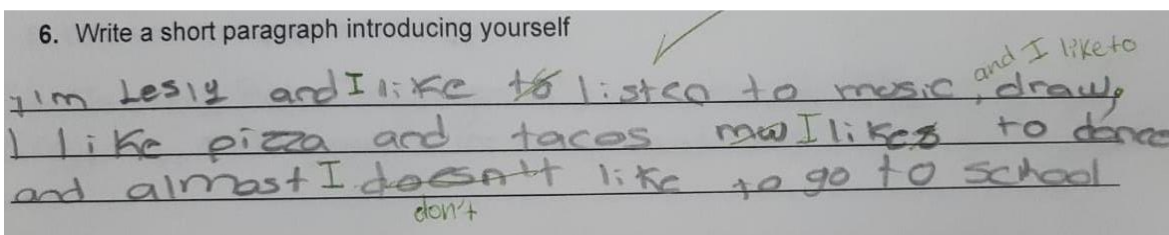 6. Write a short paragraph introducing yourself
and I like to
I'm Lesly and I like to listen to music, draw,
I like pizza and tacos I likes to dance
and almost I doesn't like to go to school
don't